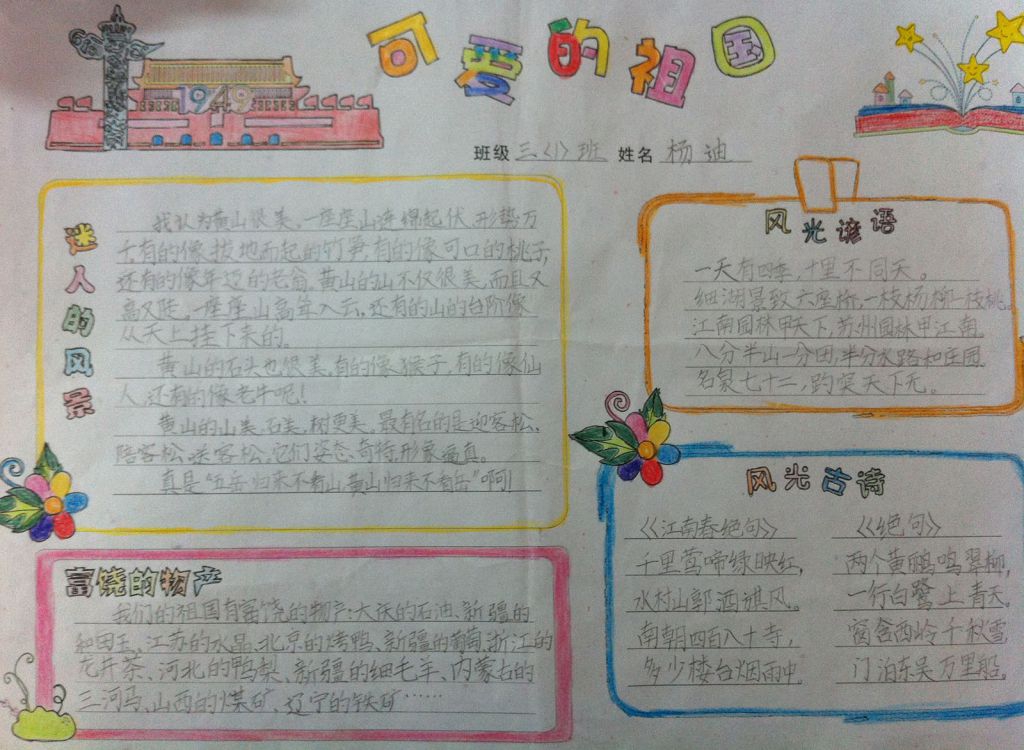 可爱的祖国
1949
班级 三〈1〉班 姓名 杨迪
迷人的风景
我认为黄山很美,一座座山连绵起伏,形势万
千,有的像拔地而起的竹笋,有的像可口的桃子,
还有的像年迈的老翁。黄山的山不仅很美,而且又
高又陡,一座座山高耸入云,还有的山的台阶像
从天上挂下来的。
黄山的石头也很美,有的像猴子,有的像仙
人,还有的像老牛呢!
黄山的山美、石美、树更美,最有名的是迎客松,
陪客松、送客松,它们姿态、奇特,形象逼真。
真是“五岳归来不看山,黄山归来不看岳”啊!
富饶的物产
我们的祖国有富饶的物产:大庆的石油、新疆的
和田玉、江苏的水晶、北京的烤鸭、新疆的葡萄、浙江的
龙井茶、河北的鸭梨、新疆的细毛羊、内蒙古的
三河马、山西的煤矿、辽宁的铁矿……
风光谚语
一天有四季,十里不同天。
细湖景致六座桥,一枝杨柳一枝桃。
江南园林甲天下,苏州园林甲江南。
八分半山一分田,半分水路和庄园。
名泉七十二,趵突天下无。
风光古诗
《江南春绝句》
千里莺啼绿映红,
水村山郭酒旗风。
南朝四百八十寺,
多少楼台烟雨中。
《绝句》
两个黄鹂鸣翠柳,
一行白鹭上青天。
窗含西岭千秋雪,
门泊东吴万里船。